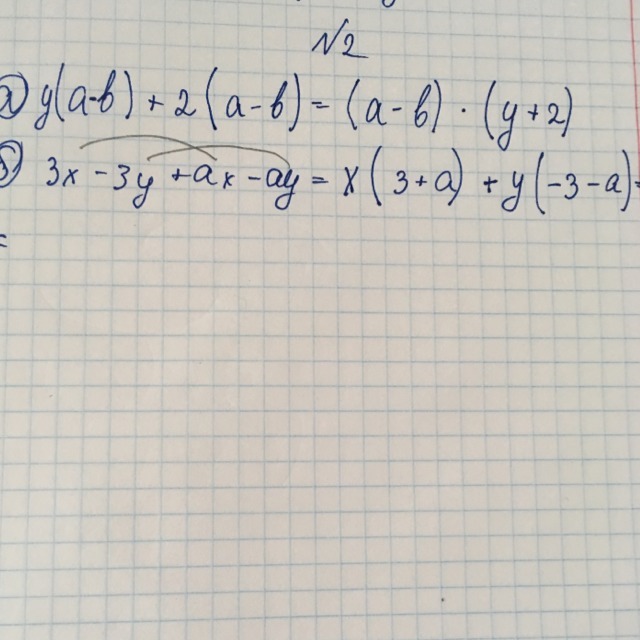 №2
а) y(a-b) + 2(a-b) = (a-b) · (y+2)
б) 3x - 3y + ax - ay = x(3+a) + y(-3-a) =
=